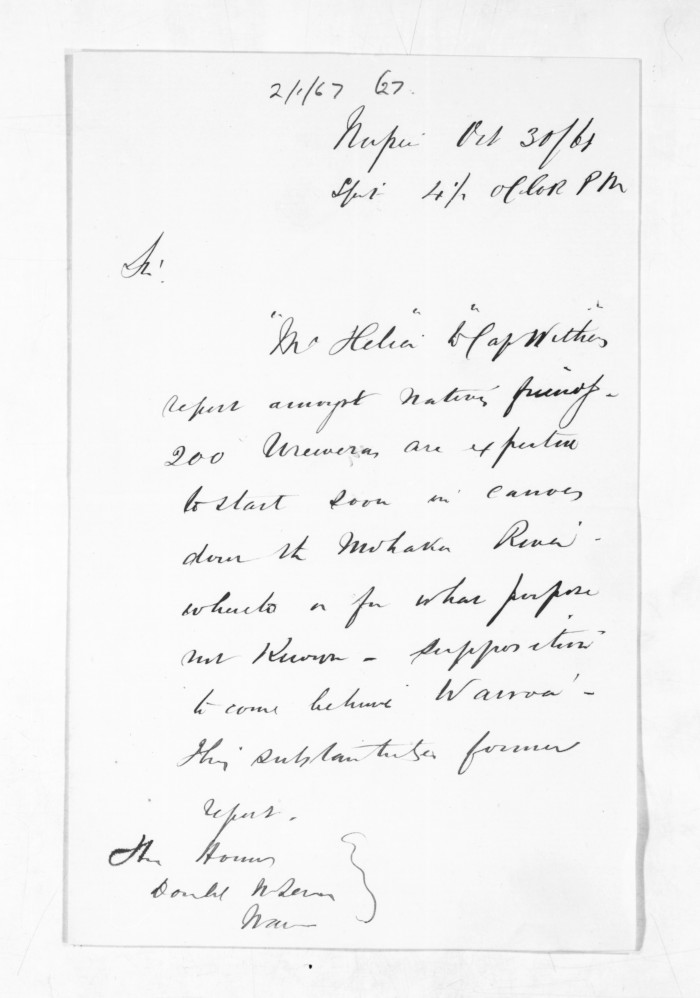 2/1/67 627.
Napier Oct 30/61
4½ oClok PM
Sir!
"Mr Helier" to "Cap Withers"
report amongst natives friendly -
200 Ureweras are expected
to start soon in canoes
down the Mohaka River -
whereto or for what purpose
not Known - supposition
to come behind Wairoa -
This substantiates former
report.
The Honor
Donald McLean